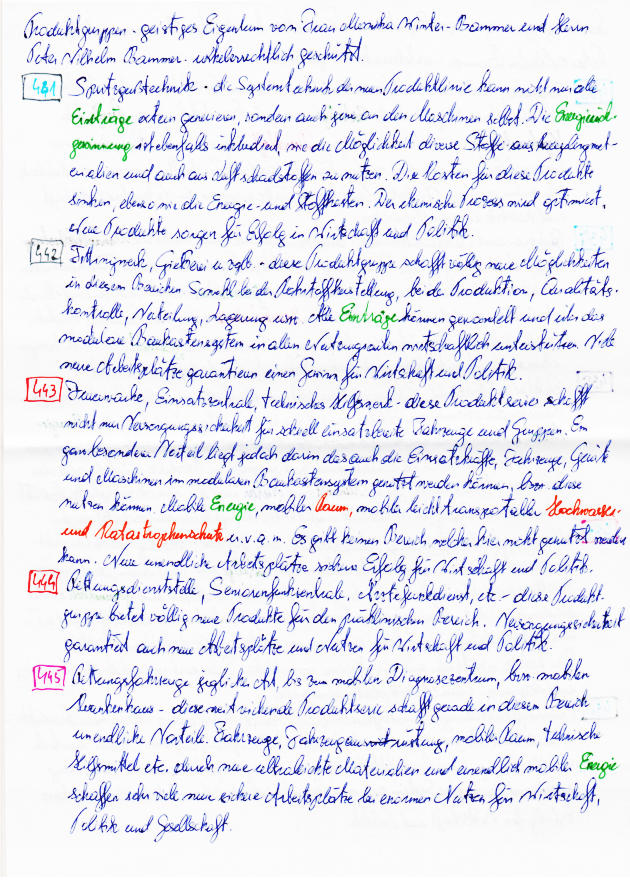 Produktgruppen - geistiges Eigentum von Frau Monika Winter-Bammer und Herrn
Peter Wilhelm Bammer - urheberrechtlich geschützt.
441 - die Systemtechnik der neuen Produktlinie kann nicht nur alle
Einträge extern generieren, sondern auch jene an den Maschinen selbst. Die Energierück-
gewinnung ist ebenfalls inkludiert, wie die Möglichkeit diverse Stoffe aus
und auch aus Luftschadstoffen zu nutzen. Die Kosten für diese Produkte
sinken, ebenso wie die Energie- und Stoffkosten. Der chemische Prozess wird optimiert,
neue Produkte sorgen für Erfolg in Wirtschaft und Politik.
442 Gießerei u. vglb. - diese Produktgruppe schafft völlig neue Möglichkeiten
in diesem Bereich. Sowohl bei der Rohstoffherstellung, bei der Produktion, Qualitäts-
kontrolle, Verteilung, Lagerung usw. Alle Einträge können gewandelt und über das
modulare Baukastensystem in allen Nutzungszeiten wirtschaftlich unterstützen. Viele
neue Arbeitsplätze garantieren einen Gewinn für Wirtschaft und Politik.
443 Feuerwache, Einsatzzentrale, technisches Hilfswerk - diese Produktserie schafft
nicht nur Versorgungssicherheit für schnell einsatzbereite Fahrzeuge und Gruppen. Ein
ganz besonderer Vorteil liegt jedoch darin das auch die Einsatzkräfte, Fahrzeuge, Geräte
und Maschinen im modularen Baukastensystem genutzt werden können, bzw. diese
nutzen können. Mobile Energie, mobiler Raum, mobiler leicht transportabler Hochwasser-
und Katastrophenschutz u. v. a. m. Es gibt keinen Bereich welcher hier nicht genutzt werden
kann. Neue unendliche Arbeitsplätze sichern Erfolg für Wirtschaft und Politik.
444 Rettungsdienststelle, Seniorenfunkzentrale, Ärztefunkdienst, etc - diese Produkt-
gruppe bietet völlig neue Produkte für den präklinischen Bereich. Versorgungssicherheit
garantiert auch neue Arbeitsplätze und Nutzen für Wirtschaft und Politik.
445 Rettungsfahrzeuge jeglicher Art, bis zum mobilen Diagnosezentrum, bzw. mobilen
Krankenhaus - diese weitreichende Produktserie schafft gerade in diesem Bereich
unendliche Vorteile. Fahrzeuge, Fahrzeugausrüstung, mobiler Raum, technische
Hilfsmittel etc. durch neue ultraleichte Materialien und unendlich mobiler Energie
schaffen sehr viele neue sichere Arbeitsplätze bei enormen Nutzen für Wirtschaft,
Politik und Gesellschaft.